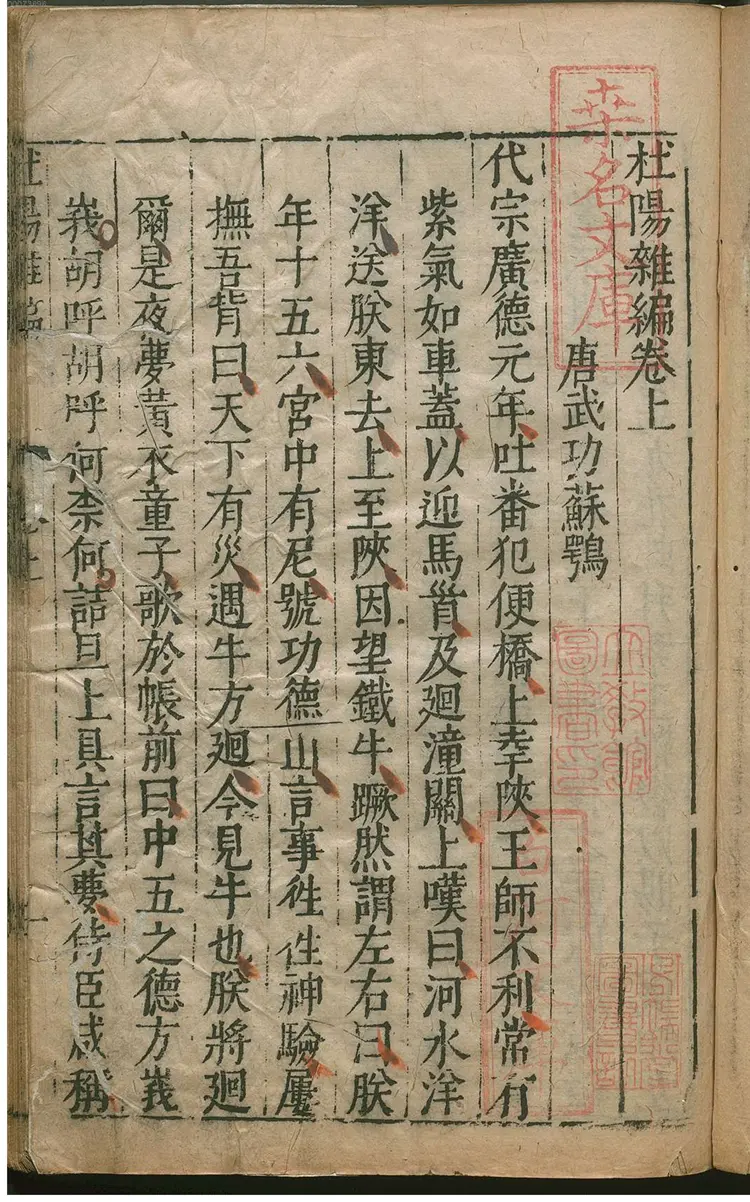 杜陽雜編卷上
唐武功蘇鶚
代宗廣德元年吐番犯便橋上幸陝王師不利常有
紫氣如車蓋以迎馬首及廻潼關上嘆曰河水洋
洋送朕東去上至陝因望鐵牛蹶然謂左右曰朕
年十五六宮中有尼號功德山言事徃徃神驗屢
撫吾背曰天下有災遇牛方廻今見牛也朕將廻
爾是夜夢黃衣童子歌於帳前曰中五之德方峩
峩胡呼胡呼何柰何詰旦上具言其夢侍臣咸稱
杜陽雜編
桒名文庫
立教館
圖書印